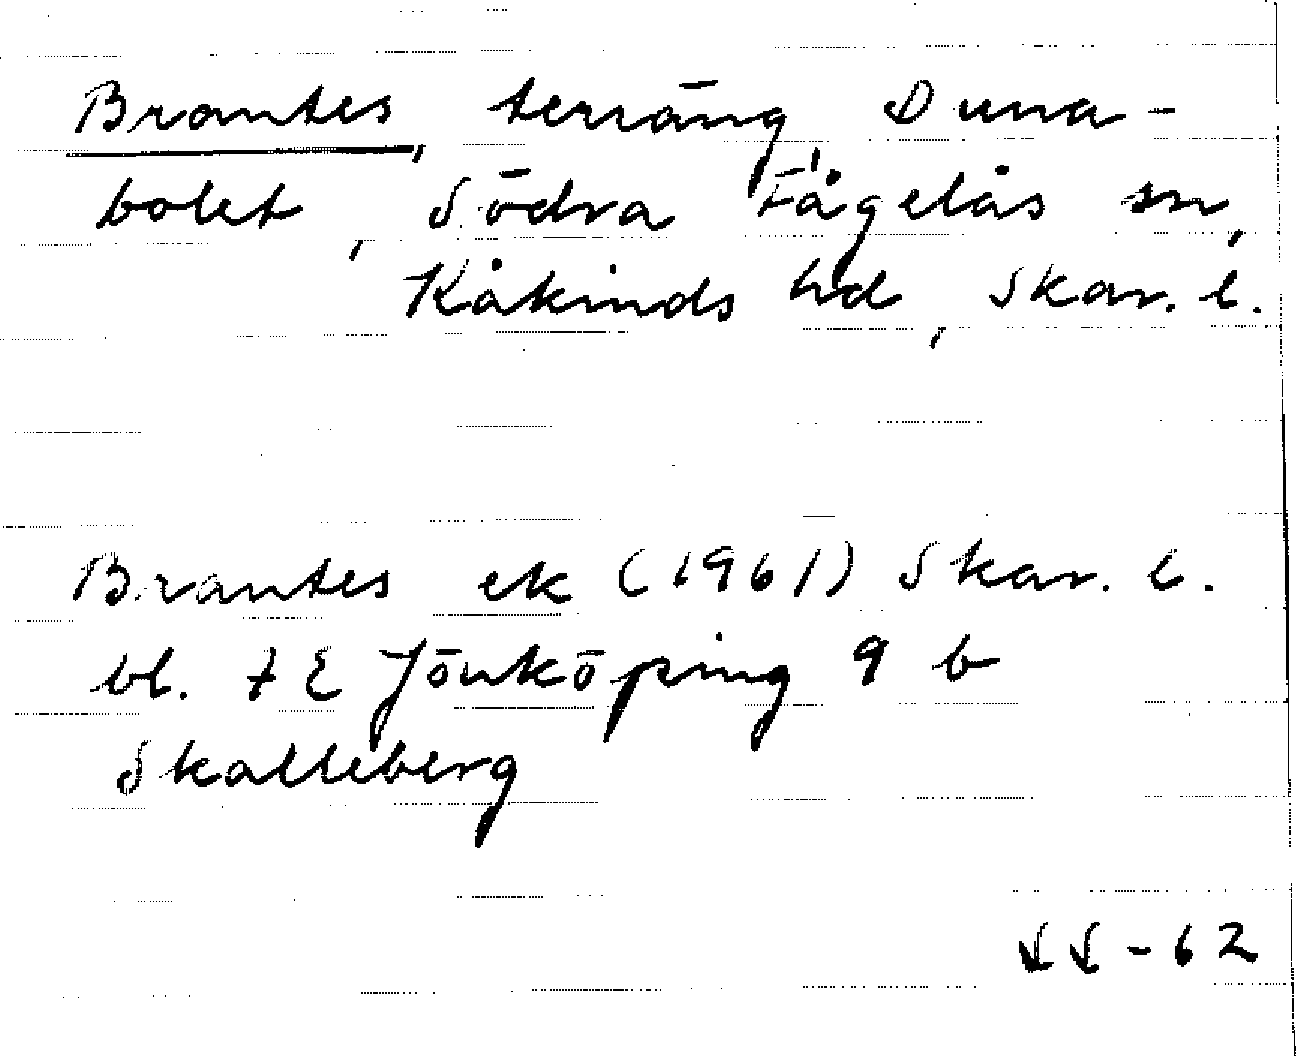 Brantes, terräng, Duna-
bolet, Södra Fågelås sn,
Kåkinds hd, Skar. l.
Brantes ek (1961) Skar. l.
bl. 7 E Jönköping 9 b
Skalleberg
SS-62